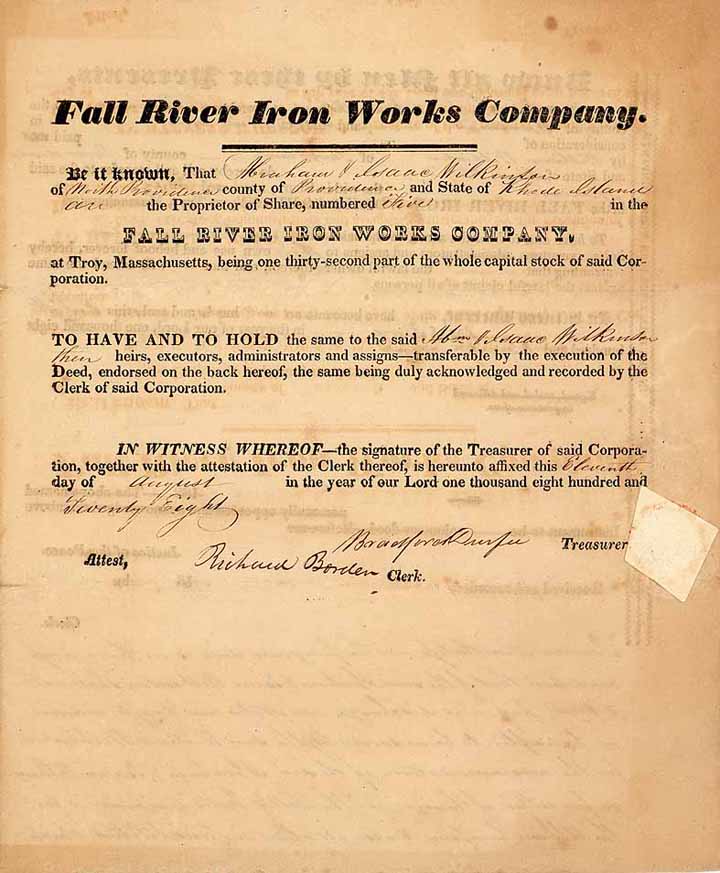 Fall River Iron Works Company.
Be it known, That Abraham & Isaac Wilkinson
of North Providence county of Providence and State of Rhode Island
are the Proprietor of Share, numbered Five in the
FALL RIVER IRON WORKS COMPANY,
at Troy, Massachusetts, being one thirty-second part of the whole capital stock of said Cor-
poration.
TO HAVE AND TO HOLD the same to the said Abm & Isaac Wilkinson
their heirs, executors, administrators and assigns—transferable by the execution of the
Deed, endorsed on the back hereof, the same being duly acknowledged and recorded by the
Clerk of said Corporation.
IN WITNESS WHEREOF—the signature of the Treasurer of said Corpora-
tion, together with the attestation of the Clerk thereof, is hereunto affixed this Eleventh
day of August in the year of our Lord one thousand eight hundred and
Twenty Eight
Bradford Durfee Treasurer
Attest, Richard Borden Clerk.